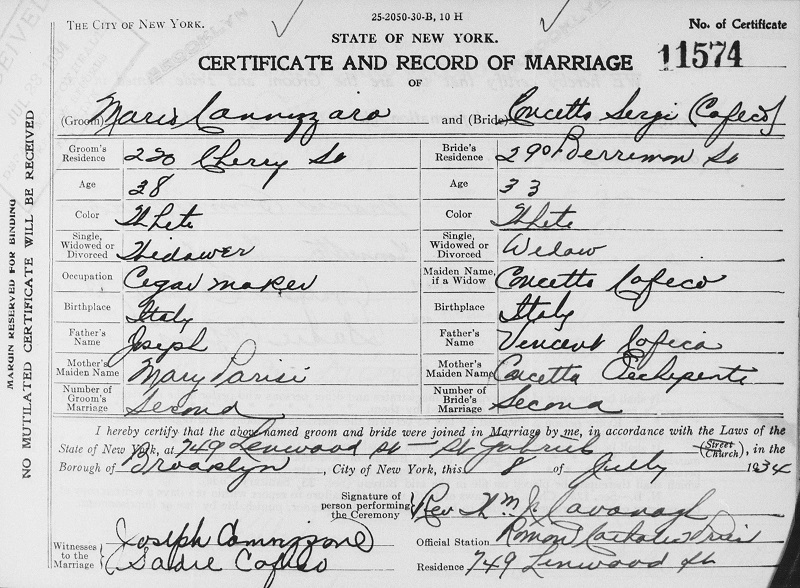 25-2050-30-B, 10 H
THE CITY OF NEW YORK.
No. of Certificate
STATE OF NEW YORK.
11574
CERTIFICATE AND RECORD OF MARRIAGE
OF
(Groom) Mario Cannizzaro and (Bride) Concetta Sergi (Cafeco)
Groom's Residence 220 Cherry St Bride's Residence 290 Berriman St
Age 38 Age 33
Color White Color White
Single, Widowed or Divorced Widower Single, Widowed or Divorced Widow
Occupation Cigar maker Maiden Name, if a Widow Concetta Cafeco
Birthplace Italy Birthplace Italy
Father's Name Joseph Father's Name Vincent
Mother's Maiden Name Mary Parisi Mother's Maiden Name Concetta
Number of Groom's Marriage Second Number of Bride's Marriage Second
I hereby certify that the above named groom and bride were joined in Marriage by me, in accordance with the Laws of the
State of New York, at 749 Linwood St - St Gabriels (Street Church), in the
Borough of Brooklyn, City of New York, this 8 of July 1934
Signature of person performing the Ceremony Rev Wm J Cavanagh
Official Station Roman Catholic Priest
Witnesses to the Marriage Joseph Cannizzaro
Sadie Cafeco
Residence 749 Linwood St
MARGIN RESERVED FOR BINDING
NO MUTILATED CERTIFICATE WILL BE RECEIVED
BROOKLYN